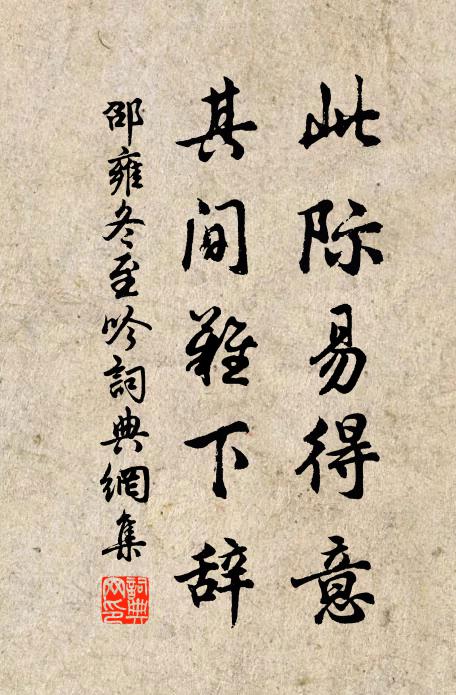 此际易得意
其间难下辞
邵雍冬至吟詞典網集
詞典
网印